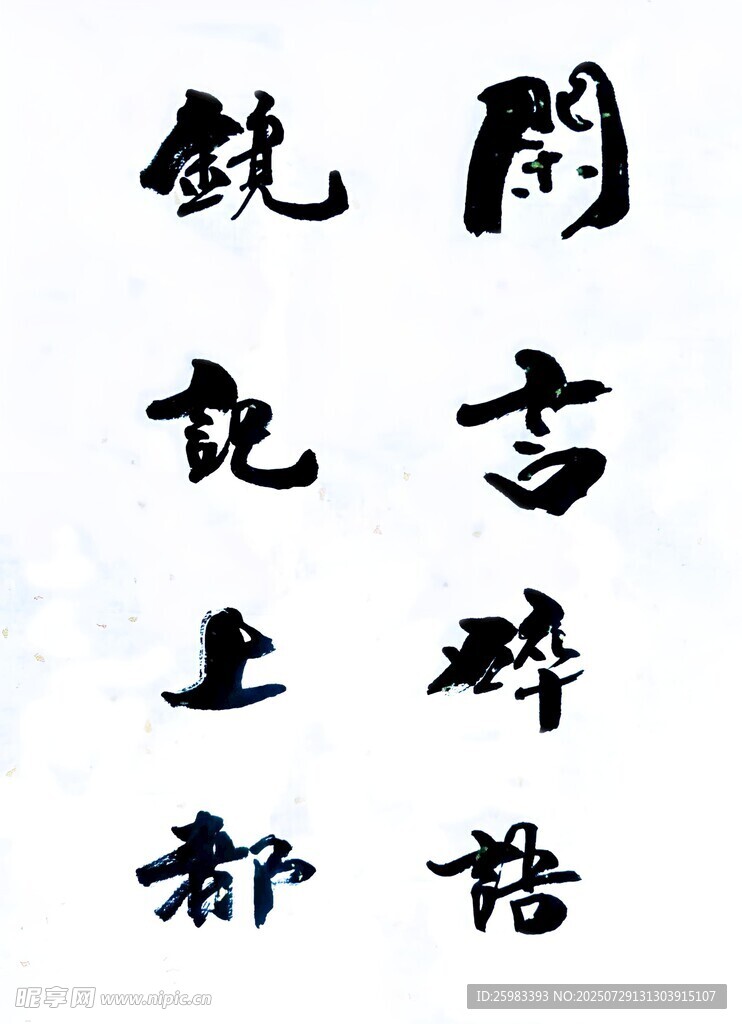 閑言碎語
鏡記上都
昵享网 www.nipic.cn
ID:25983393 NO:20250729131303915107